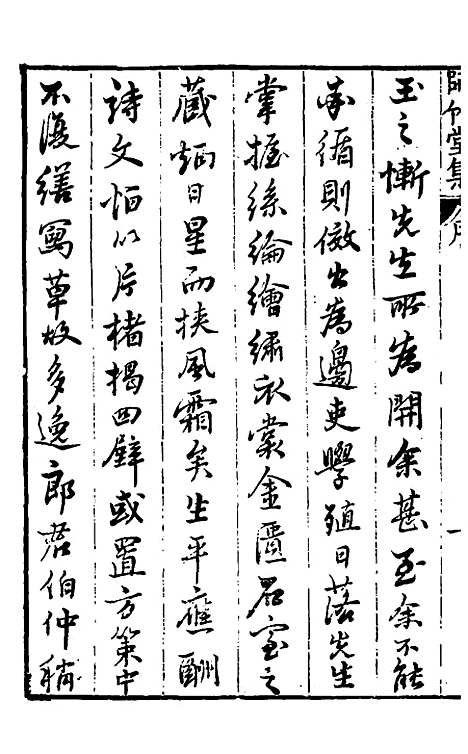 玉之慚先生所為開余甚至余不能
率循則倣出為邊吏學殖日落先生
掌握絲綸繪繡衣裳金匱石室之
藏炳日星而挾風霜矣生平應酬
詩文恒以片楮揭四壁或置方策中
不復繕寫草故多逸郎君伯仲稍